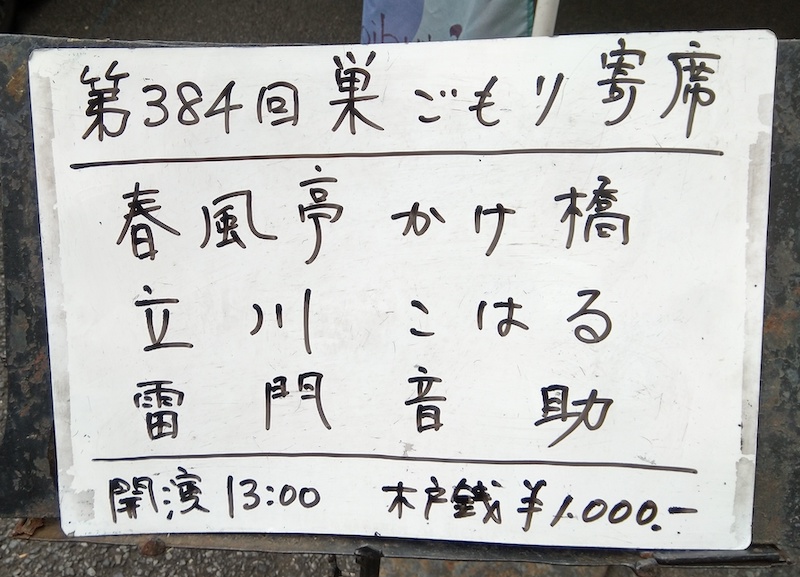 第384回 巣ごもり寄席
春風亭 かけ橋
立川 こはる
雷門 音助
開演 13:00 木戸銭 ¥1.000.-